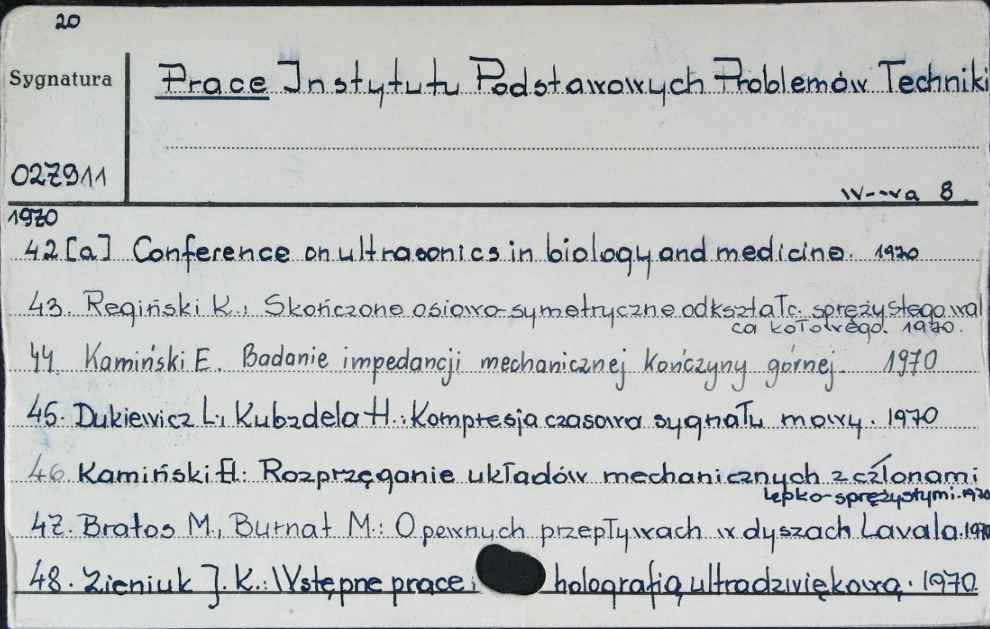 20
Sygnatura
Prace Instytutu Podstawowych Problemów Techniki
027911
W-wa 8
1970
42[a] Conference on ultrasonics in biology and medicine. 1970
43. Regiński K., Skończone osiowo-symetryczne odkształc. sprężystego wal
ca kołowego. 1970.
44. Kamiński E. Badanie impedancji mechanicznej kończyny górnej. 1970
45. Dukiewicz L., Kubzdela H.: Kompresja czasowa sygnału mowy. 1970
46. Kamiński E.: Rozprzęganie układów mechanicznych z członami
lepko-sprężystymi. 1970
47. Bratos M., Burnat M.: O pewnych przepływach w dyszach Lavala. 1970
48. Zieniuk J. K.: Wstępne prace holografią ultradźwiękową. 1970.